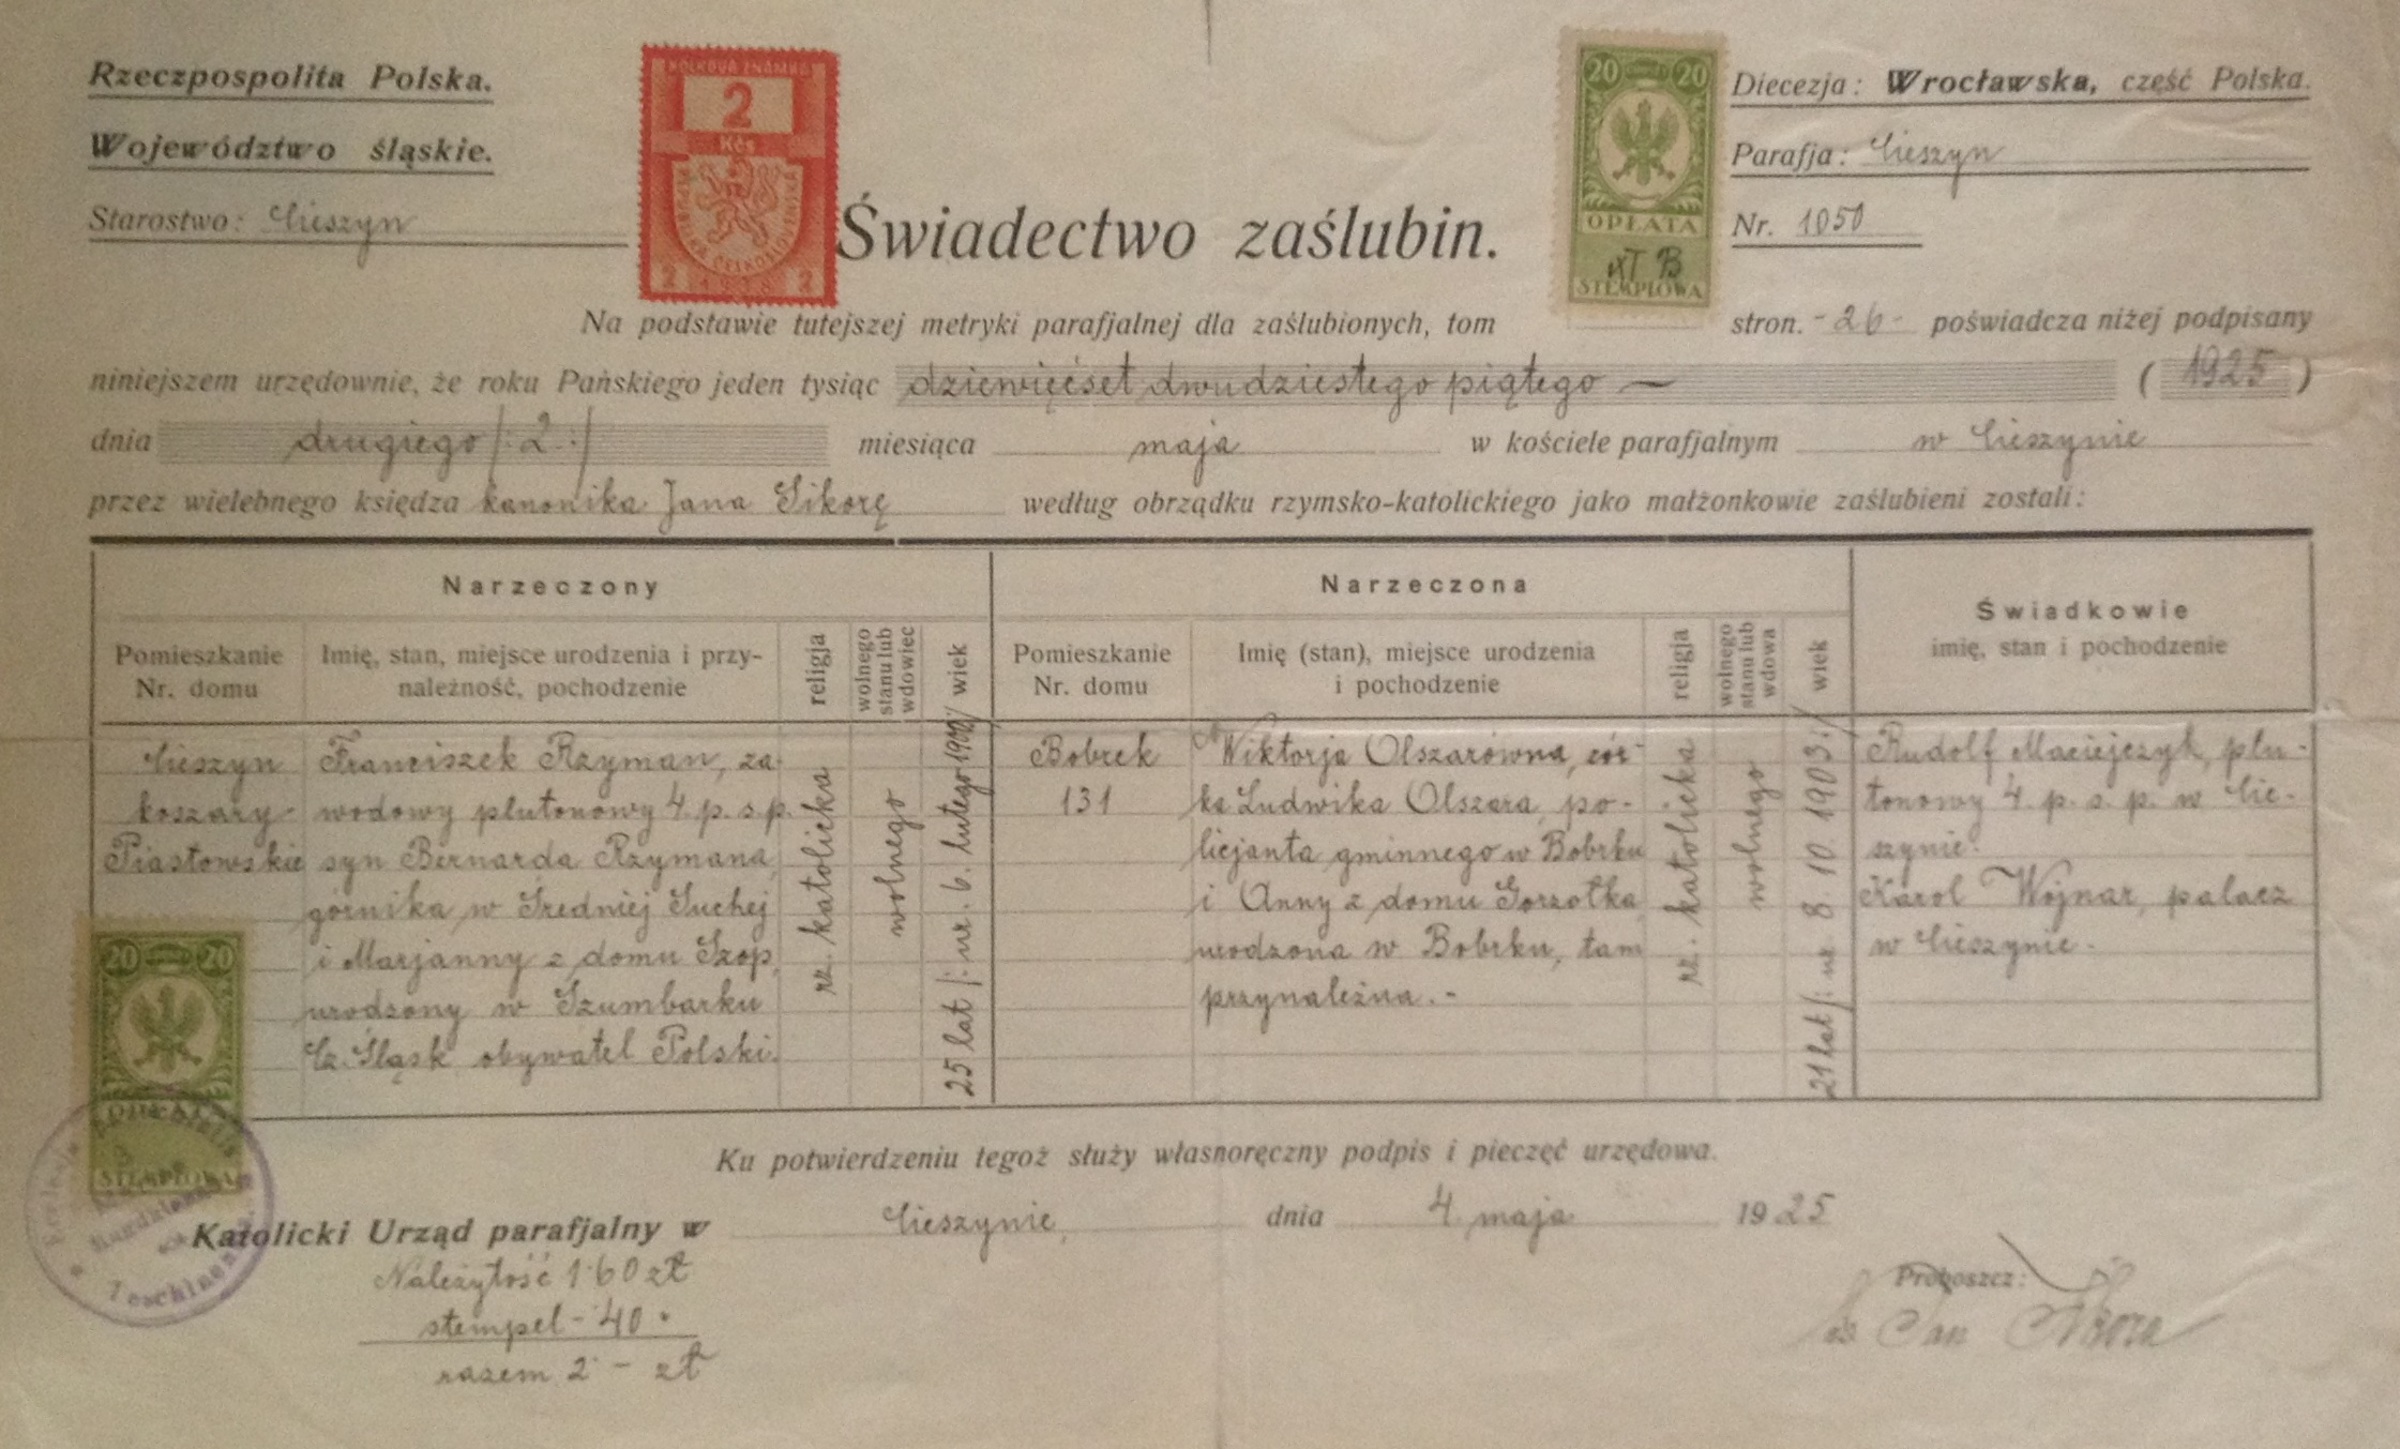 Rzeczpospolita Polska.
Województwo śląskie.
Starostwo: Cieszyn
KOLKOVÁ ZNÁMKA
2
Kčs
REPUBLIKA ČESKOSLOVENSKÁ
2 2
20 20
OPŁATA
STEMPLOWA
Diecezja: Wrocławska, część Polska.
Parafja: Cieszyn
Nr. 1050
Świadectwo zaślubin.
Na podstawie tutejszej metryki parafjalnej dla zaślubionych, tom stron. - 26 - poświadcza niżej podpisany
niniejszem urzędownie, że roku Pańskiego jeden tysiąc dziewięćset dwudziestego piątego — (1925)
dnia drugiego /:2:/ miesiąca maja w kościele parafjalnym w Cieszynie
przez wielebnego księdza kanonika Jana Sikorę według obrządku rzymsko-katolickiego jako małżonkowie zaślubieni zostali:
Narzeczony
Pomieszkanie
Nr. domu
Imię, stan, miejsce urodzenia i przy-
należność, pochodzenie
religja
wolnego
stanu lub
wdowiec
wiek
Narzeczona
Pomieszkanie
Nr. domu
Imię (stan), miejsce urodzenia
i pochodzenie
religja
wolnego
stanu lub
wdowa
wiek
Świadkowie
imię, stan i pochodzenie
Cieszyn
koszary
Piastowskie
Franciszek Rzyman, za-
wodowy plutonowy 4. p. s. p.
syn Bernarda Rzymana,
górnika w Średniej Suchej
i Marjanny z domu Szop,
urodzony w Szumbarku
Cz. Śląsk obywatel Polski.
rz. katolicka
wolnego
25 lat /: ur. 6. lutego
Bobrek
131
Wiktorja Olszarówna, cór-
ka Ludwika Olszara, po-
licjanta gminnego w Bobrku
i Anny z domu Gorzołka
urodzona w Bobrku, tam
przynależna. -
rz. katolicka
wolnego
21 lat /: ur. 8. 10. 1903:/
Rudolf Maciejczyk, plu-
tonowy 4. p. s. p. w Cie-
szynie.
Karol Wojnar, palacz
w Cieszynie -
20 20
OPŁATA
STEMPLOWA
Teschinen
Ku potwierdzeniu tegoż służy własnoręczny podpis i pieczęć urzędowa.
Katolicki Urząd parafjalny w Cieszynie, dnia 4. maja 1925
Należytość 1·60 zł
stempel - 40 "
razem 2 - zł
Proboszcz:
ks. Jan Sikora